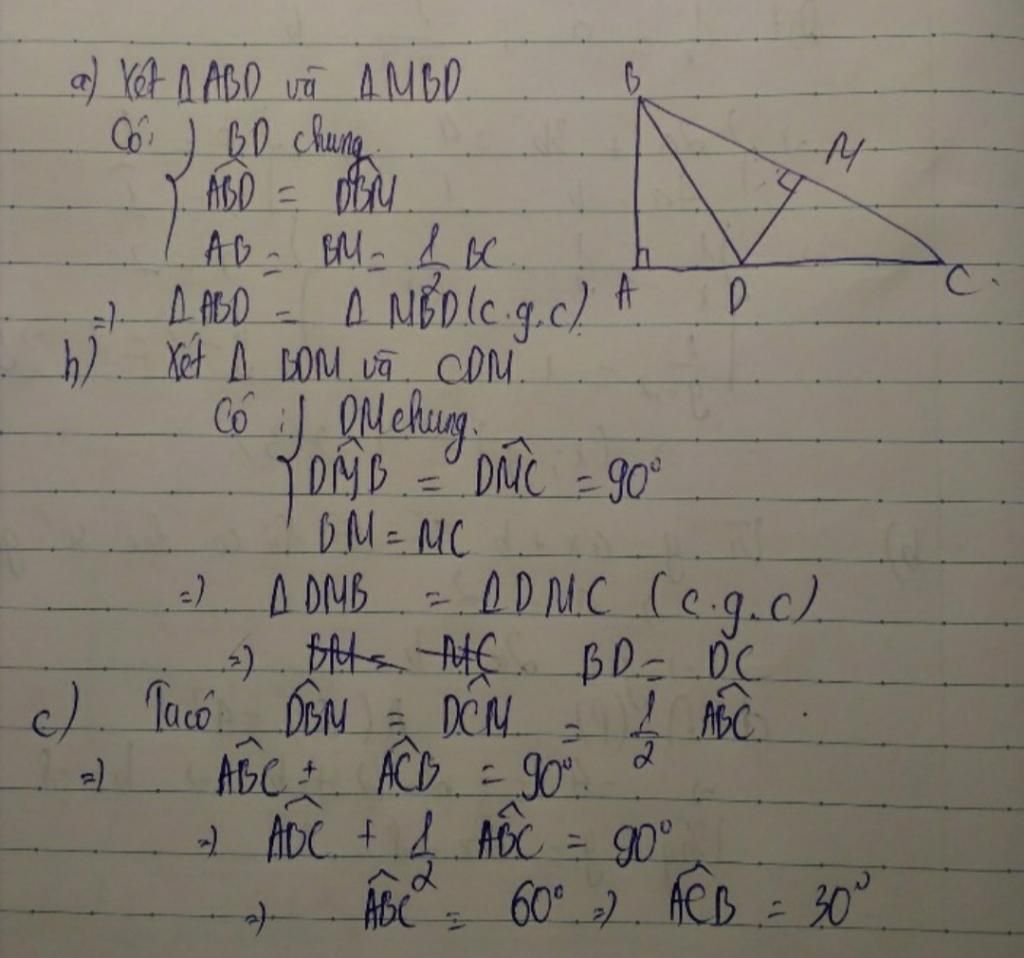 a) Xét ΔABD và ΔMBD
Có: { BD chung.
\widehat{ABD} = \widehat{DBM}
AB = BM = \frac{1}{2} BC
=) ΔABD = ΔMBD (c.g.c)
b) Xét Δ BDM và CDM.
Có : { DM chung.
\widehat{DMB} = \widehat{DMC} = 90°
BM = MC
=) ΔDMB = ΔDMC (c.g.c)
=) ~~BM = MC~~ BD = DC
c) Ta có \widehat{DBM} = \widehat{DCM} = \frac{1}{2} \widehat{ABC}
=) \widehat{ABC} + \widehat{ACB} = 90°
=) \widehat{ABC} + \frac{1}{2} \widehat{ABC} = 90°
=) \widehat{ABC} = 60° =) \widehat{ACB} = 30°
B
M
A D C